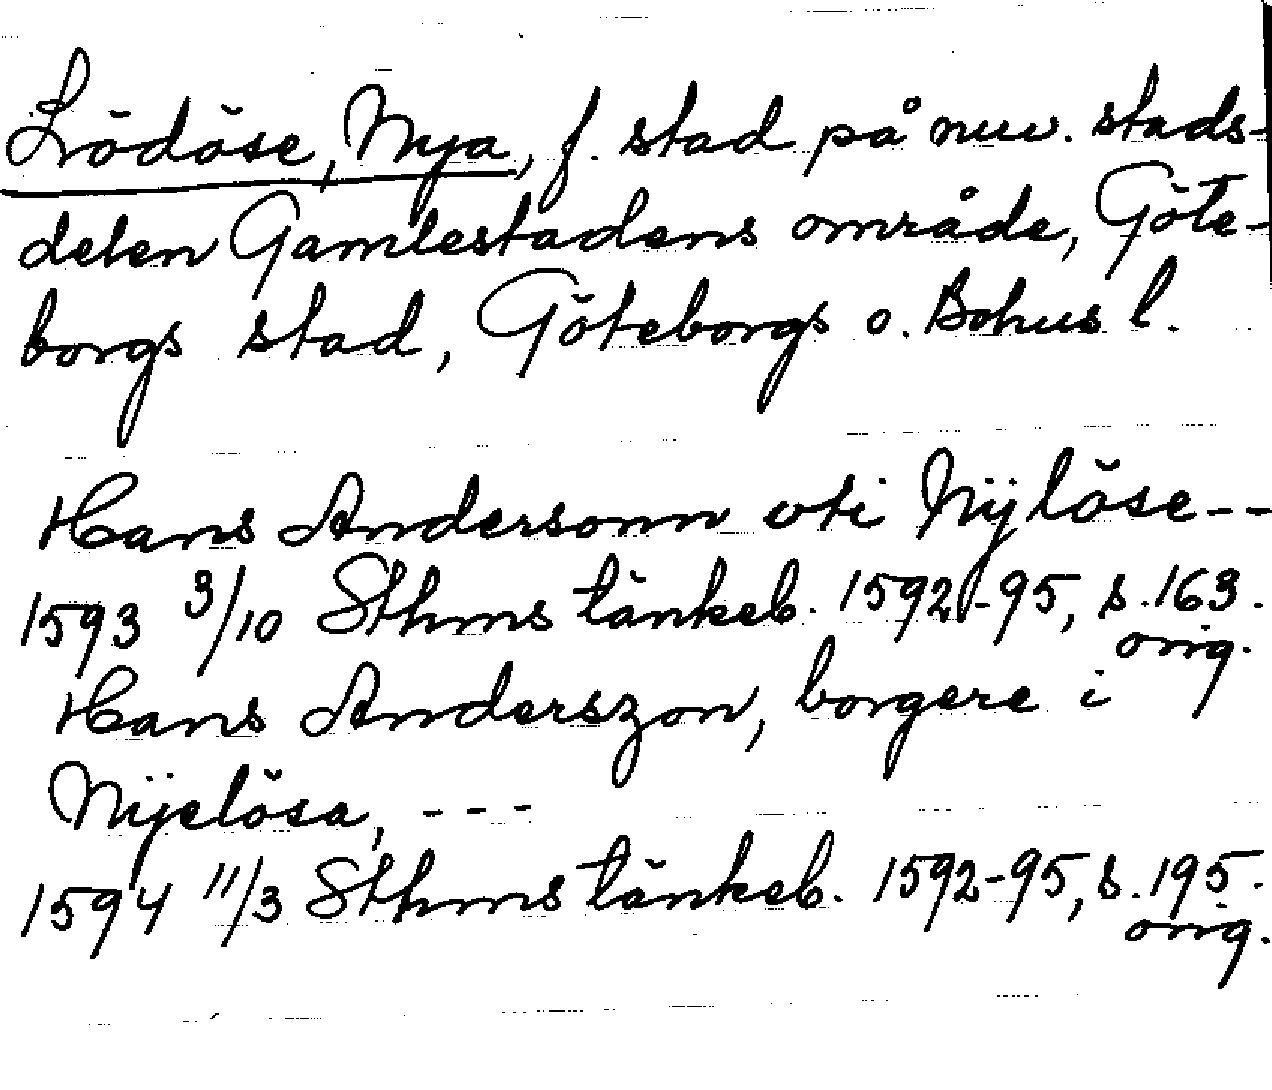 Lödöse, Nya, f. stad på nuv. stads-
delen Gamlestadens område, Göte-
borgs stad, Göteborgs o. Bohus l.
Hans Andersonn vti Nÿlöse--
1593 3/10 Sthms tänkeb. 1592-95, s. 163.
orig.
Hans Anderszon, borgere i
Nijelösa, ---
1594 11/3 Sthms tänkeb. 1592-95, s. 195.
orig.